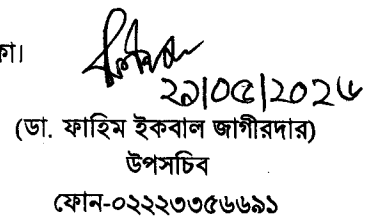 কা।
২১/০৫/২০২৬
(ডা. ফাহিম ইকবাল জাগীরদার)
উপসচিব
ফোন-০২২২৩৩৫৬৬৯১